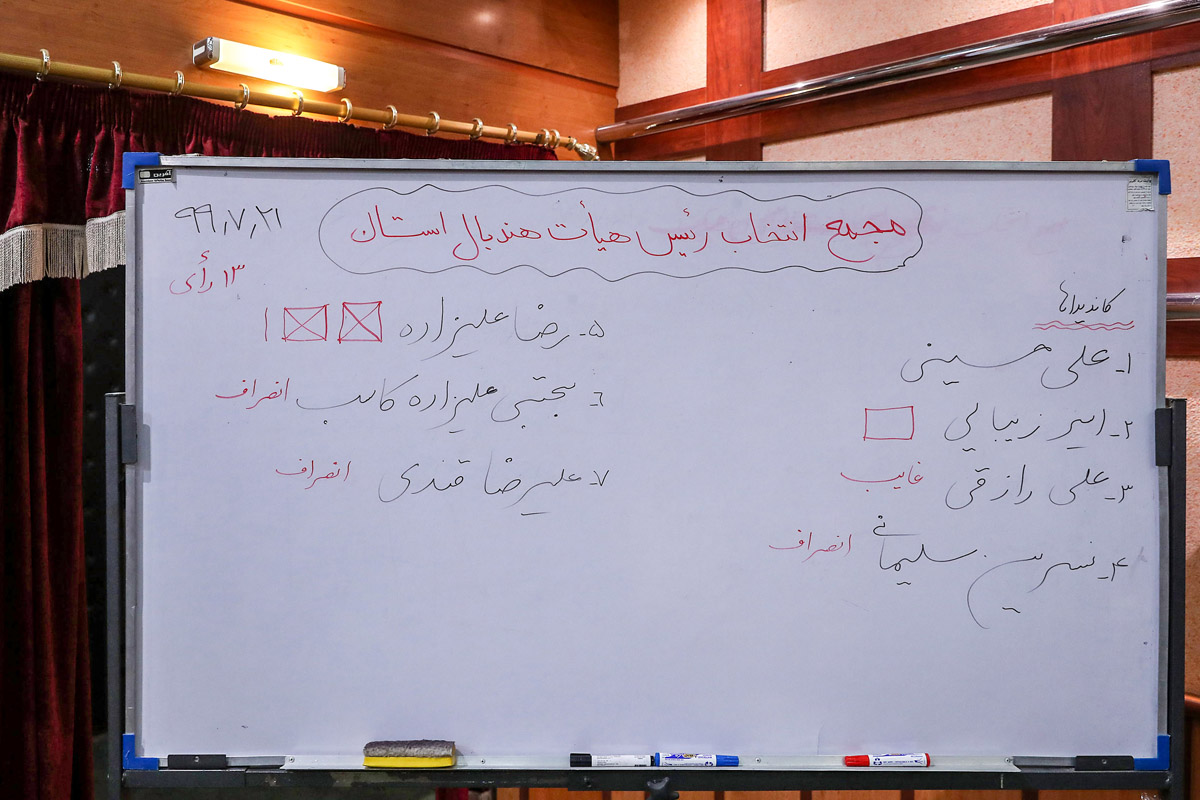 مجمع انتخاب رئیس هیأت هندبال استان
۹۹,۷,۲۱
۱۳ رأی
کاندیداها
۱- علی حسینی
۲- امیر زیبالی
۳- علی رازقی غایب
۴- نسرین سلیمانی انصراف
۵- رضا علیزاده ۱
۶- مجتبی علیزاده کاسب انصراف
۷- علیرضا قندی انصراف